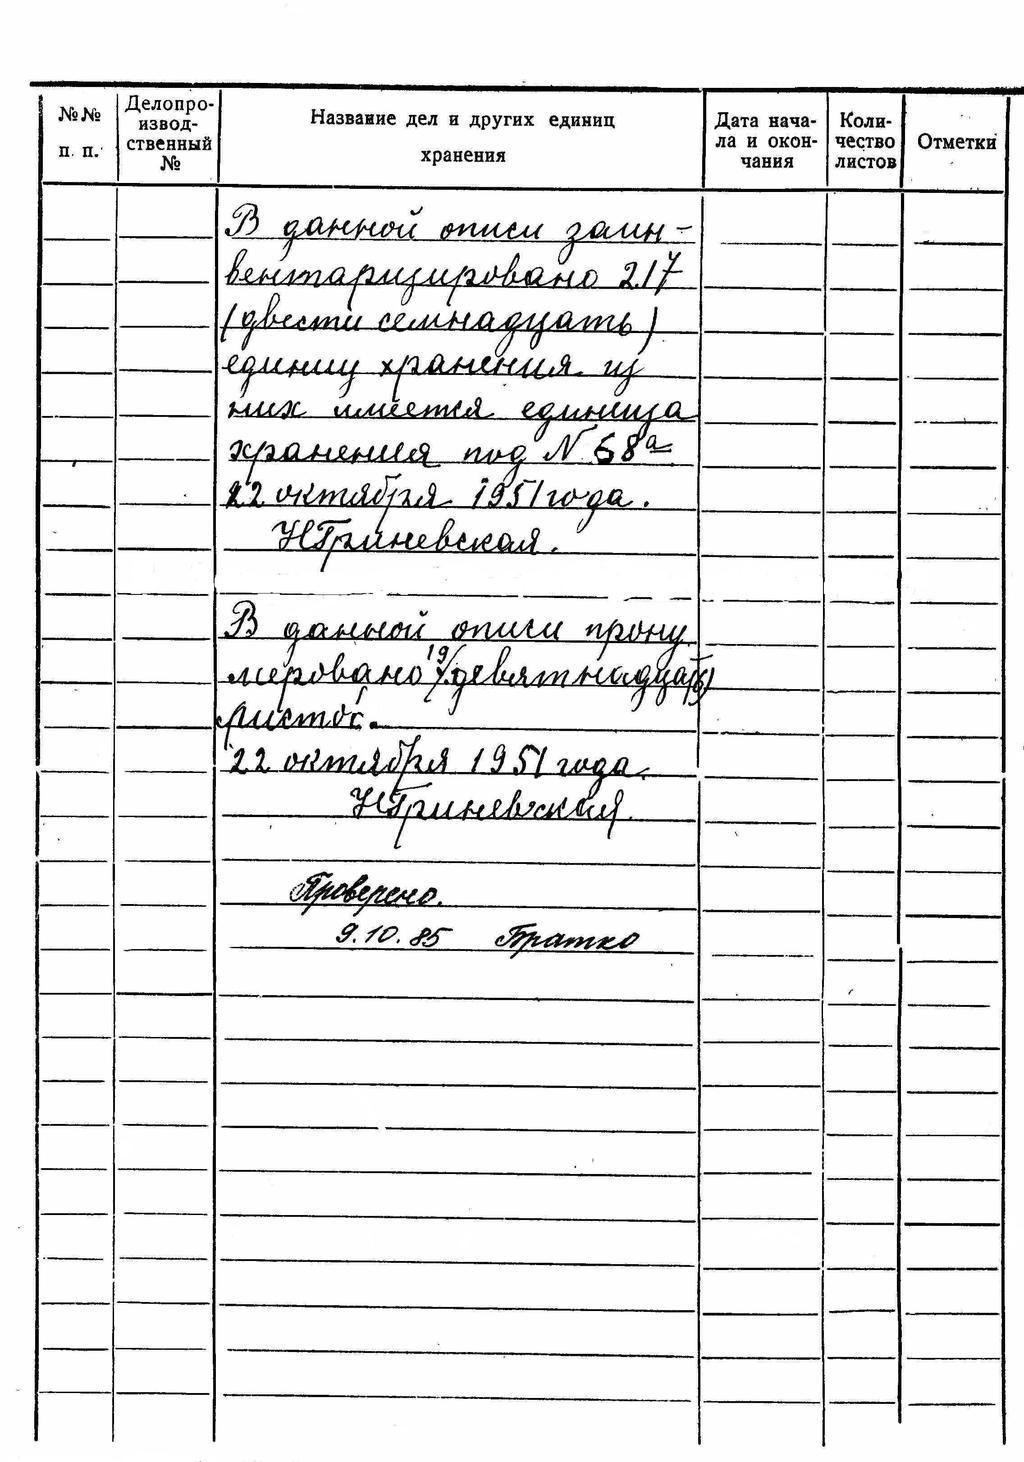 №№ п. п.
Делопро-
извод-
ственный
№
Название дел и других единиц
хранения
Дата нача-
ла и окон-
чания
Коли-
чество
листов
Отметки
В данной описи заин-
вентаризировано 217
(двести семнадцать)
единиц хранения из
них имеется единица
хранения под N 68а
22 октября 1951 года.
НГриневская.
В данной описи прону
меровано 19 (девятнадцать)
листов.
22 октября 1951 года.
НГриневская
Проверено.
9.10.85 Братко